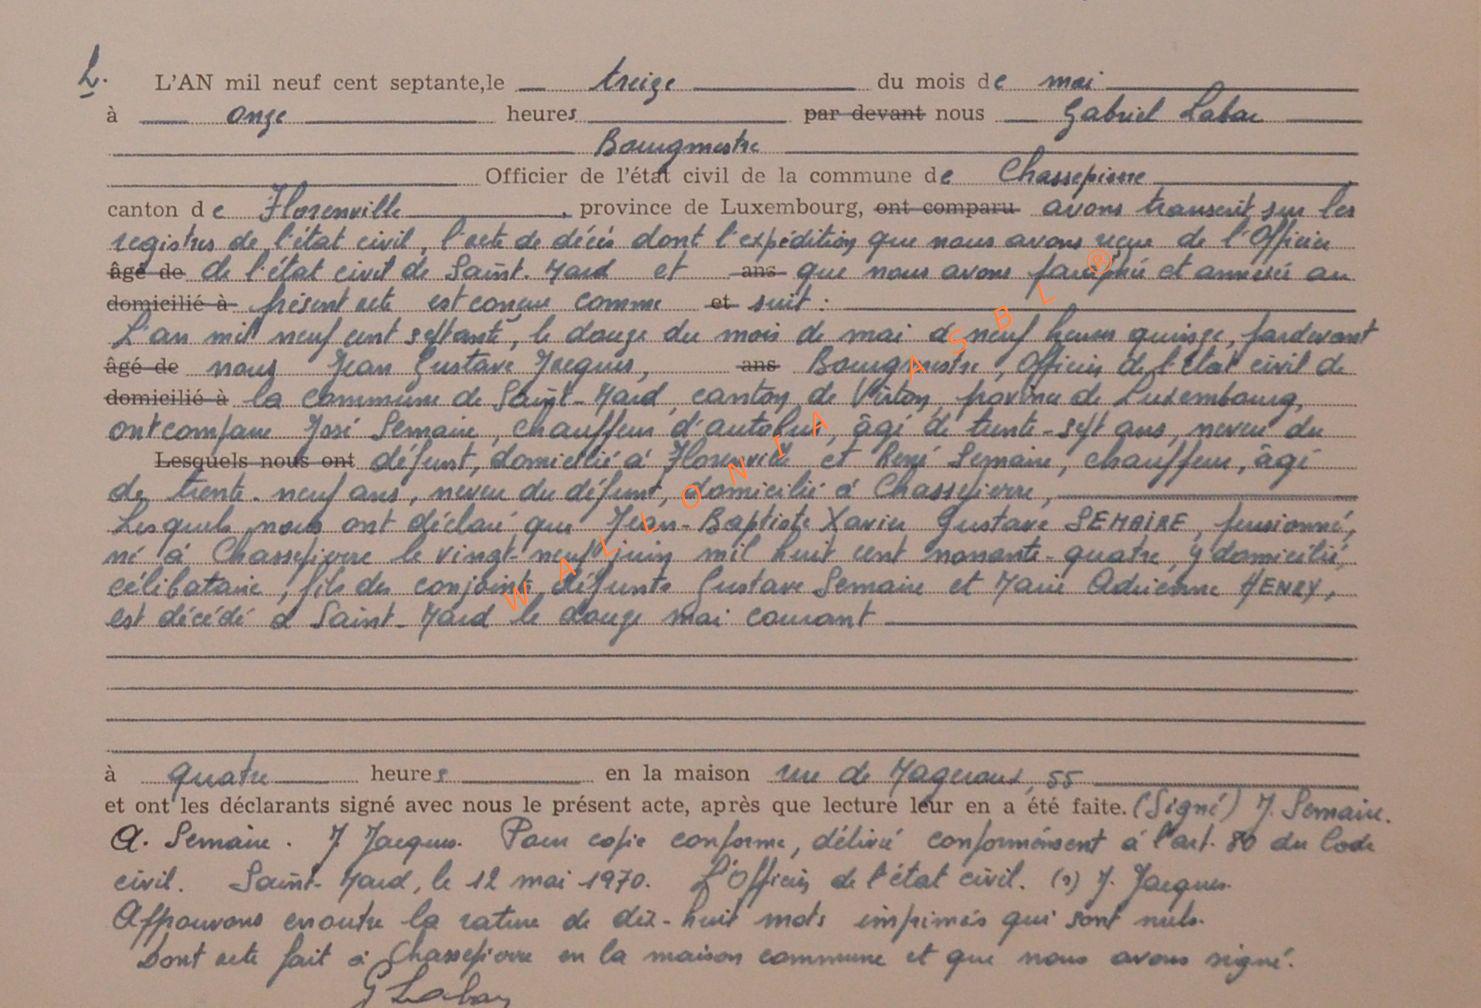 2. L'AN mil neuf cent septante, le treize du mois de mai
à onze heures par devant nous Gabriel Labar
Bourgmestre
Officier de l'état civil de la commune de Chassepierre
canton de Florenville, province de Luxembourg, ont comparu avons transcrit sur les
registres de l'état civil, l'acte de décès dont l'expédition que nous avons reçue de l'Officier
âgé de de l'état civil de Saint-Mard et ans que nous avons paraphée et annexée au
domicilié à présent acte est conçue comme et suit :
L'an mil neuf cent septante, le douze du mois de mai à neuf heures quinze, pardevant
âgé de nous Jean Gustave Jacques, ans Bourgmestre, Officier de l'état civil de
domicilié à la commune de Saint-Mard, canton de Virton, province de Luxembourg,
ont comparu José Semaire, chauffeur d'autobus, âgé de trente-sept ans, neveu du
Lesquels nous ont défunt, domicilié à Florenville et René Semaire, chauffeur, âgé
de trente-neuf ans, neveu du défunt, domicilié à Chassepierre,
Lesquels nous ont déclaré que Jean-Baptiste Xavier Gustave SEMAIRE, pensionné,
né à Chassepierre le vingt-neuf juin mil huit cent nonante-quatre, y domicilié,
célibataire, fils des conjoints défunts Gustave Semaire et Marie Adrienne HENRY,
est décédé à Saint-Mard le douze mai courant
à quatre heures en la maison rue de Mageroux, 55
et ont les déclarants signé avec nous le présent acte, après que lecture leur en a été faite. (Signé) J. Semaire.
A. Semaire. J. Jacques. Pour copie conforme, délivré conformément à l'art. 80 du Code
civil. Saint-Mard, le 12 mai 1970. L'Officier de l'état civil. (s) J. Jacques.
Approuvons en outre la rature de dix-huit mots imprimés qui sont nuls.
Dont acte fait à Chassepierre en la maison commune et que nous avons signé.
G Labar
WALLONIA ASBL ®